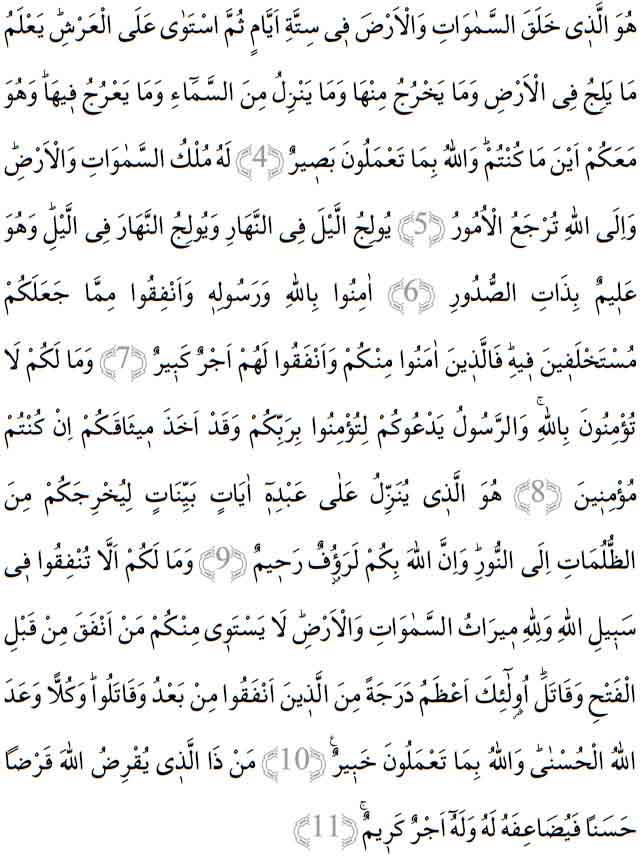 هُوَ الَّذ۪ي خَلَقَ السَّمٰوَاتِ وَالْاَرْضَ ف۪ي سِتَّةِ اَيَّامٍ ثُمَّ اسْتَوٰى عَلَى الْعَرْشِۜ يَعْلَمُ
مَا يَلِجُ فِي الْاَرْضِ وَمَا يَخْرُجُ مِنْهَا وَمَا يَنْزِلُ مِنَ السَّمَٓاءِ وَمَا يَعْرُجُ ف۪يهَاۜ وَهُوَ
مَعَكُمْ اَيْنَ مَا كُنْتُمْۜ وَاللّٰهُ بِمَا تَعْمَلُونَ بَص۪يرٌ ﴿4﴾ لَهُ مُلْكُ السَّمٰوَاتِ وَالْاَرْضِۜ
وَاِلَى اللّٰهِ تُرْجَعُ الْاُمُورُ ﴿5﴾ يُولِجُ الَّيْلَ فِي النَّهَارِ وَيُولِجُ النَّهَارَ فِي الَّيْلِۜ وَهُوَ
عَل۪يمٌ بِذَاتِ الصُّدُورِ ﴿6﴾ اٰمِنُوا بِاللّٰهِ وَرَسُولِه۪ وَاَنْفِقُوا مِمَّا جَعَلَكُمْ
مُسْتَخْلَف۪ينَ ف۪يهِۜ فَالَّذ۪ينَ اٰمَنُوا مِنْكُمْ وَاَنْفَقُوا لَهُمْ اَجْرٌ كَب۪يرٌ ﴿7﴾ وَمَا لَكُمْ لَا
تُؤْمِنُونَ بِاللّٰهِۚ وَالرَّسُولُ يَدْعُوكُمْ لِتُؤْمِنُوا بِرَبِّكُمْ وَقَدْ اَخَذَ م۪يثَاقَكُمْ اِنْ كُنْتُمْ
مُؤْمِن۪ينَ ﴿8﴾ هُوَ الَّذ۪ي يُنَزِّلُ عَلٰى عَبْدِه۪ٓ اٰيَاتٍ بَيِّنَاتٍ لِيُخْرِجَكُمْ مِنَ
الظُّلُمَاتِ اِلَى النُّورِۜ وَاِنَّ اللّٰهَ بِكُمْ لَرَؤُ۫فٌ رَح۪يمٌ ﴿9﴾ وَمَا لَكُمْ اَلَّا تُنْفِقُوا ف۪ي
سَب۪يلِ اللّٰهِ وَلِلّٰهِ م۪يرَاثُ السَّمٰوَاتِ وَالْاَرْضِۜ لَا يَسْتَو۪ي مِنْكُمْ مَنْ اَنْفَقَ مِنْ قَبْلِ
الْفَتْحِ وَقَاتَلَۜ اُو۬لٰٓئِكَ اَعْظَمُ دَرَجَةً مِنَ الَّذ۪ينَ اَنْفَقُوا مِنْ بَعْدُ وَقَاتَلُواۜ وَكُلًّا وَعَدَ
اللّٰهُ الْحُسْنٰىۜ وَاللّٰهُ بِمَا تَعْمَلُونَ خَب۪يرٌ۟ ﴿10﴾ مَنْ ذَا الَّذ۪ي يُقْرِضُ اللّٰهَ قَرْضًا
حَسَنًا فَيُضَاعِفَهُ لَهُ وَلَهُٓ اَجْرٌ كَر۪يمٌۚ ﴿11﴾